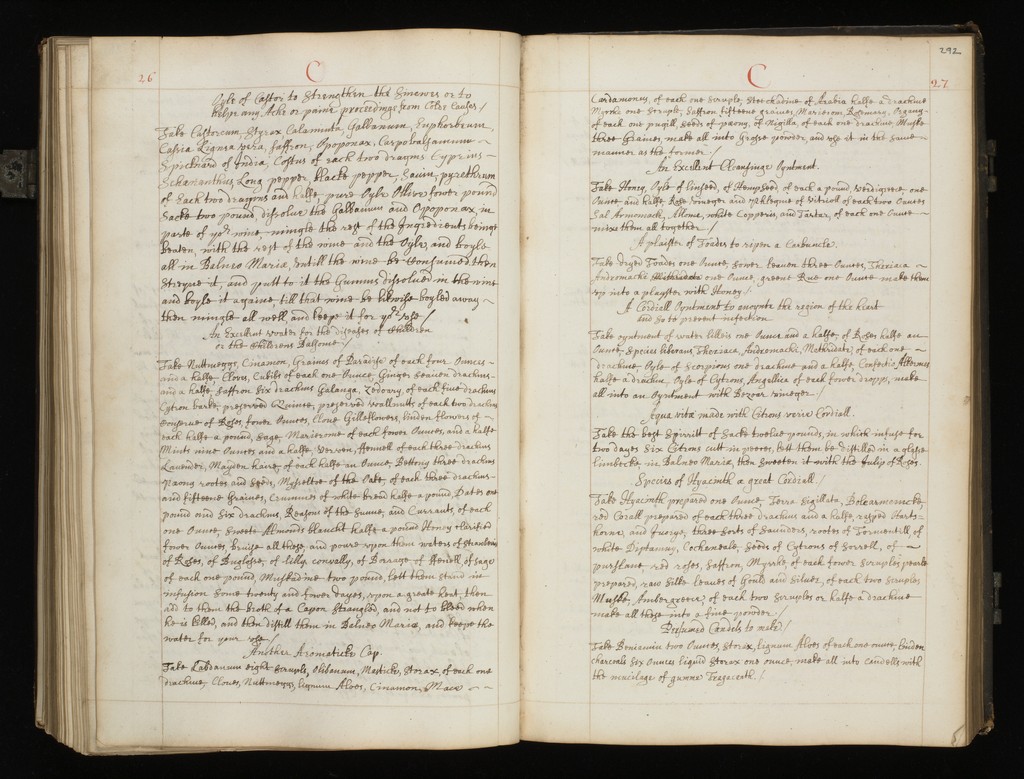 26
C
Oyle of Castor to Strengthen the Sinewes or to
helpe any Ache or paine proceedinge from Cold Causes /
Take Castoreum, Styrax Calamenta, Galbanum, Euphorbium,
Cassia Lignea vera, Saffron, Opoponax, Carpobalsamum
Spicknard of India, Costus of each two dragms Cyprus
Schananthus, Long pepper, blacke pepper, Savin, pyrethrum
of Each two dragoms and halfe, pure Oyle Ollive fower pound
Sacke two pound, dissolve the Galbanum and Opoponax in
parte of yor wine mingle the rest of the Ingredients beinge
beaten, with the rest of the wine and the Oyle, and boyle
all in Balneo Mariæ, untill the wine be Consumed then
Streyne it, and putt to it the Gumms dissolved in the wine
and boyle it againe till that wine be likwise boyled away
then mingle all well, and keepe it for yor use /
An Excellent water for the diseases of Children
or the Childrens Balsome /
Take Nuttmeggs, Cinamon, Graines of Paradise of each four Ounces
and a halfe, Cloves, Cubibs of each one Ounce, Ginger seaven drachms
and a halfe, Saffron Six drachms Galanga, Zedoary, of each five drachms
Cytron barke, preserved Quince, preserved wallnutts of each two drachms
Conserve of Roses, fower Ounces, Clove Gilleflowers, linden flowers of
each halfe a pound, Sage, Mariorome of each fower Ounces, and a halfe
Mints nine Ounces and a halfe, Verven, ffennell of each three drachms
Lavender, Mayden haire, of each halfe an Ounce, Bettony three drachms
Paeony rootes and Seeds, Misseltoe of the Oake, of each three drachms
and fifteene Graines, Crumms of white bread halfe a pound, Dates one
pound and Six drachms, Reasons of the Sunne, and Currants of each
one Ounce, Sweete Almonds blancht halfe a pound Honey clarified
fower Ounces, bruise all these, and poure upon them waters of Strawberies
of Roses, of Buglosse, of lilly convally, of Borage of ffennell, of sage
of each one pound, Muskadine two pound, lett them stand in
infusion Some twenty and fower dayes, upon a greate heat, then
add to them the broth of a Capon Strangled, and not to bleed when
he is killed, and then distill them in Balneo Mariæ, and keepe the
water for your use /
Another Aromaticke Cap
Take Labdanum eight Scruples, Olibanum, Masticke, Storax of each one
drachme, Cloves, Nuttmeggs, lignum Aloes, Cinamon, Mace
292
C
27
Cardamomes, of each one Scruple, Stoechadine of Arabia halfe a drachme
Myrrhe one Scruple, Saffron fifteene graines, Marierom Rosemary, Organy
of each one pugill, Seeds of paeony, of Nigilla of each one drachme, Muske
three Graines, make all into Grosse powder, and use it in the same
manner as the former /
An Excellent Cleansinge Oyntment.
Take Honey, Oyle of linseed, of Hempseed of each a pound, verdigrece, one
Ounce and halfe Rose vineger and Phlegme of Vitrioll of each two Ounces
Sal Armoniack, Allome, white Copperis, and Tartar, of each one Ounce
mixe them all together /
A plaister of Toades to ripen a Carbuncle.
Take dryed Toades one Ounce, sower leaven three Ounces, Theriaca
Andromachi Methridate one Ounce, greene Rue one Ounce make them
up into a playster with Honey /
A Cordiall Oyntment to anoynte the region of the heart
and so to prevent infection
Take oyntment of water lillies one Ounce and a halfe, of Roses halfe an
Ounce, Species liberans, Theriaca, Andromachi, Methridate of each one
drachme, Oyle of Scorpions one drachme and a halfe, Confectio Alkermes
halfe a drachme, Oyle of Cytrons, Angellica of each fower dropps, make
all into an Oyntment with Bezoar vineger /
Aqua vitæ made with Citrons vere Cordiall.
Take the best Spirritt of Sacke twelve pounds, in which infuse for
two dayes Six Citrons cutt in peeces, lett them be distilled in a glasse
limbecke in Balneo Mariæ, then Sweeten it with the Julip of Roses.
Species of Hyacinth a great Cordiall /
Take Hyacinth prepared one Ounce, Terra Sigillata, Bolearmonicke,
red Corall prepared of each three drachms and a halfe, rasped Harts
horne, and Ivorye, three sorts of Saunders, rootes of Tormentill, of
white Diptamny, Cocheneale, Seeds of Cytrons of Sorrell, of
purslane, red roses, Saffron, Myrrhe, of each fower Scruples, pearle
prepared, raw Silke leaves of Gould and Silver, of each two Scruples
Muske, Ambergreece of each two Scruples or halfe a drachme
make all these into a fine powder /
Perfumed Candels to make /
Take Beniamin two Ounces, Storax, lignum Aloes of each one ounce linden
charcoale Six Ounces liquid Storax one ounce, make all into Candells with
the mucilage of gumme Tragacerth /